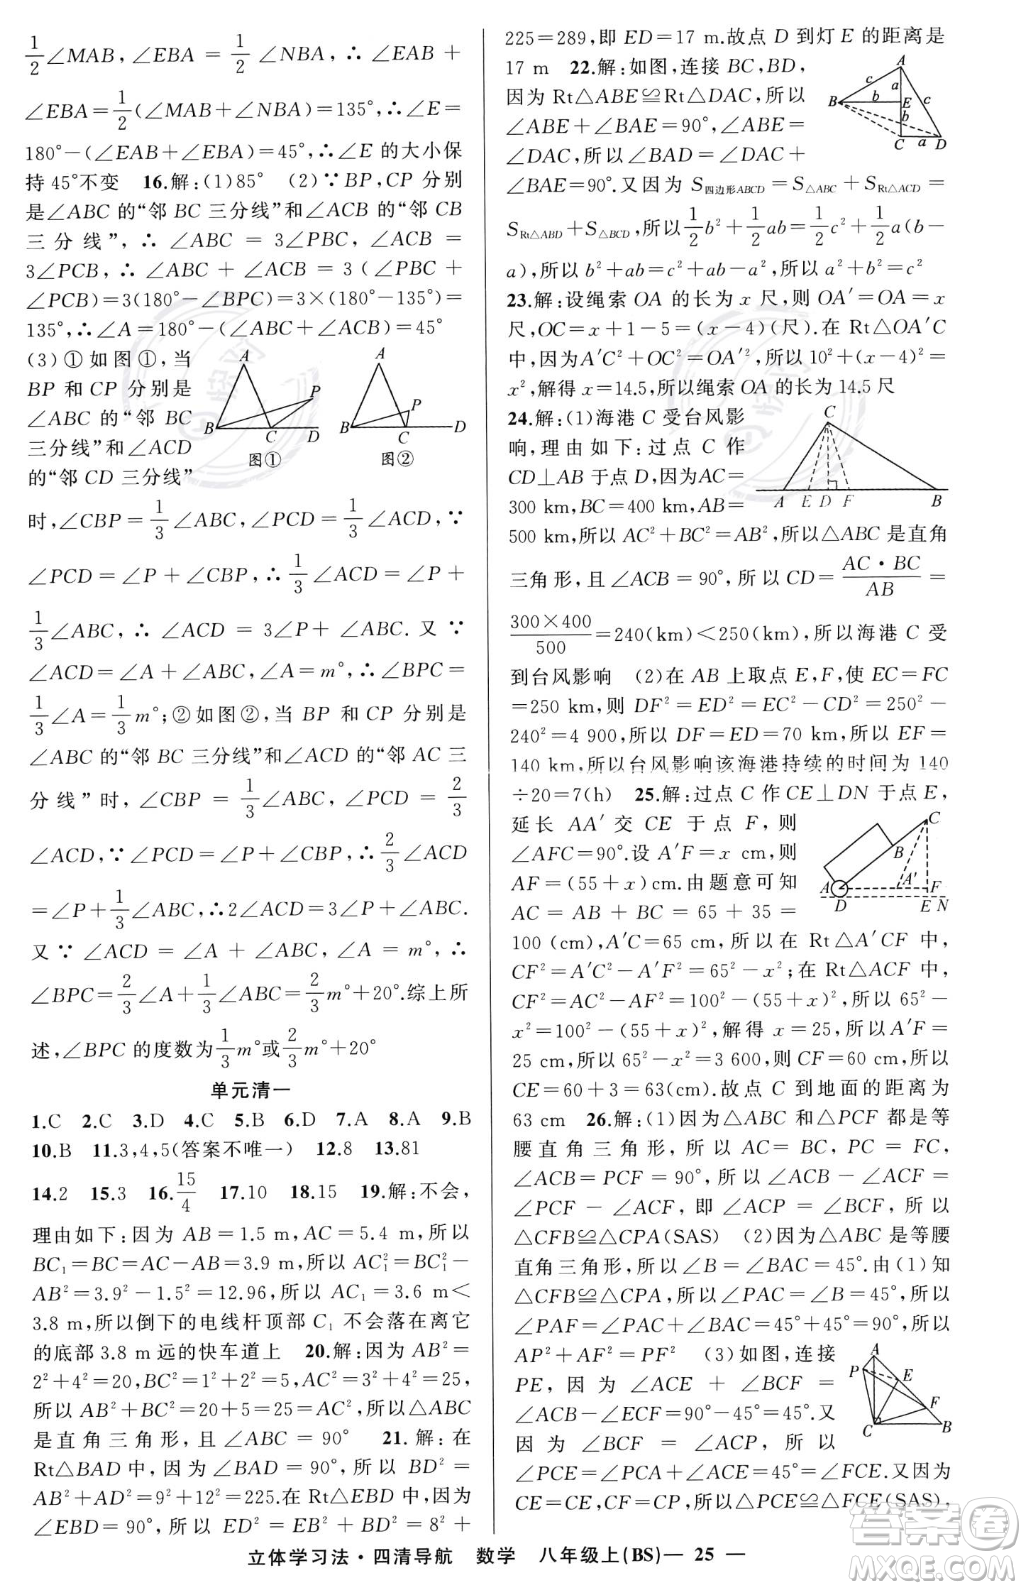 1/2∠MAB,∠EBA=1/2∠NBA,∴∠EAB+
∠EBA=1/2(∠MAB+∠NBA)=135°,∴∠E=
180°-(∠EAB+∠EBA)=45°,∴∠E的大小保
持45°不变 16.解:(1)85° (2)∵BP,CP分别
是∠ABC的“邻BC三分线”和∠ACB的“邻CB
三分线”,∴∠ABC=3∠PBC,∠ACB=
3∠PCB,∴∠ABC+∠ACB=3(∠PBC+
∠PCB)=3(180°-∠BPC)=3×(180°-135°)=
135°,∴∠A=180°-(∠ABC+∠ACB)=45°
(3)①如图①,当
BP和CP分别是
∠ABC的“邻BC
三分线”和∠ACD
的“邻CD三分线”
A
P
B C D
图①
A
P
B C D
图②
时,∠CBP=1/3∠ABC,∠PCD=1/3∠ACD,∵
∠PCD=∠P+∠CBP,∴1/3∠ACD=∠P+
1/3∠ABC,∴∠ACD=3∠P+∠ABC.又∵
∠ACD=∠A+∠ABC,∠A=m°,∴∠BPC=
1/3∠A=1/3m°;②如图②,当BP和CP分别是
∠ABC的“邻BC三分线”和∠ACD的“邻AC三
分线”时,∠CBP=1/3∠ABC,∠PCD=2/3
∠ACD,∵∠PCD=∠P+∠CBP,∴2/3∠ACD
=∠P+1/3∠ABC,∴2∠ACD=3∠P+∠ABC.
又∵∠ACD=∠A+∠ABC,∠A=m°,∴
∠BPC=2/3∠A+1/3∠ACD=2/3m°+20°.综上所
述,∠BPC的度数为1/3m°或2/3m°+20°
单元清一
1.C 2.C 3.D 4.C 5.B 6.D 7.A 8.A 9.B
10.B 11.3,4,5(答案不唯一) 12.8 13.81
14.2 15.3 16.15/4 17.10 18.15 19.解:不会,
理由如下:因为AB=1.5 m,AC=5.4 m,所以
BC₁=BC=AC-AB=3.9 m,所以AC₁²=BC₁²-
AB²=3.9²-1.5²=12.96,所以AC₁=3.6 m<
3.8 m,所以倒下的电线杆顶部C₁不会落在离它
的底部3.8 m远的快车道上 20.解:因为AB²=
2²+4²=20,BC²=1²+2²=5,AC²=3²+4²=25,
所以AB²+BC²=20+5=25=AC²,所以△ABC
是直角三角形,且∠ABC=90° 21.解:在
Rt△BAD中,因为∠BAD=90°,所以BD²=
AB²+AD²=9²+12²=225.在Rt△EBD中,因为
∠EBD=90°,所以ED²=EB²+BD²=8²+
225=289,即ED=17 m.故点D到灯E的距离是
17 m 22.解:如图,连接BC,BD,
因为Rt△ABE≌Rt△DAC,所以
∠ABE+∠BAE=90°,∠ABE=
∠DAC,所以∠BAD=∠DAC+
∠BAE=90°.又因为S四边形ABCD=S△ABC+SRt△ACD=
A
c a
B b E c
b
C a D
SRt△ABD+S△BCD,所以1/2b²+1/2ab=1/2c²+1/2a(b-
a),所以b²+ab=c²+ab-a²,所以a²+b²=c²
23.解:设绳索OA的长为x尺,则OA′=OA=x
尺,OC=x+1-5=(x-4)(尺).在Rt△OA′C
中,因为A′C²+OC²=OA′²,所以10²+(x-4)²=
x²,解得x=14.5,所以绳索OA的长为14.5尺
24.解:(1)海港C受台风影
响,理由如下:过点C作
CD⊥AB于点D,因为AC=
300 km,BC=400 km,AB=
C
A E D F B
500 km,所以AC²+BC²=AB²,所以△ABC是直角
三角形,且∠ACB=90°,所以CD=AC·BC/AB=
300×400/500=240(km)<250(km),所以海港C受
到台风影响 (2)在AB上取点E,F,使EC=FC
=250 km,则DF²=ED²=EC²-CD²=250²-
240²=4 900,所以DF=ED=70 km,所以EF=
140 km,所以台风影响该海港持续的时间为140
÷20=7(h) 25.解:过点C作CE⊥DN于点E,
延长AA′交CE于点F,则
∠AFC=90°.设A′F=x cm,则
AF=(55+x)cm.由题意可知
AC=AB+BC=65+35=
C
B
A A′ F
D E N
100(cm),A′C=65 cm,所以在Rt△A′CF中,
CF²=A′C²-A′F²=65²-x²;在Rt△ACF中,
CF²=AC²-AF²=100²-(55+x)²,所以65²-
x²=100²-(55+x)²,解得x=25,所以A′F=
25 cm,所以65²-x²=3 600,则CF=60 cm,所以
CE=60+3=63(cm).故点C到地面的距离为
63 cm 26.解:(1)因为△ABC和△PCF都是等
腰直角三角形,所以AC=BC,PC=FC,
∠ACB=∠PCF=90°,所以∠ACB-∠ACF=
∠PCF-∠ACF,即∠ACP=∠BCF,所以
△CFB≌△CPA(SAS) (2)因为△ABC是等腰
直角三角形,所以∠B=∠BAC=45°.由(1)知
△CFB≌△CPA,所以∠PAC=∠B=45°,所以
∠PAF=∠PAC+∠BAC=45°+45°=90°,所以
AP²+AF²=PF² (3)如图,连接
PE,因为∠ACE+∠BCF=
∠ACB-∠ECF=90°-45°=45°.又
因为∠BCF=∠ACP,所以
A
P E
F
C B
∠PCE=∠PCA+∠ACE=45°=∠FCE.又因为
CE=CE,CF=CP,所以△PCE≌△FCE(SAS),
立体学习法·四清导航 数学 八年级上(BS)— 25 —
答案圈
MXQE.COM